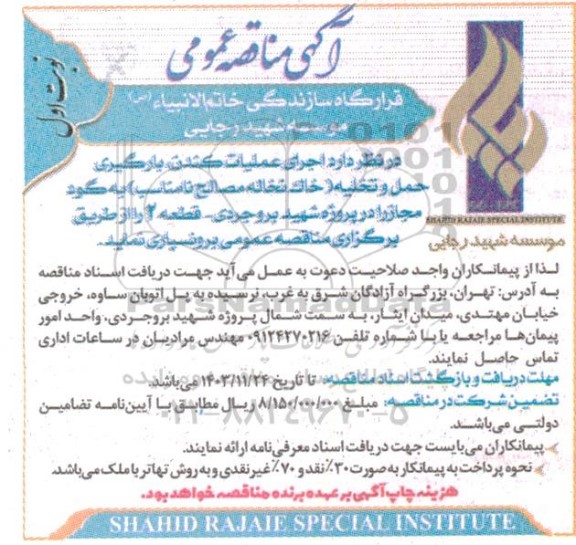 آگهی مناقصه عمومی
نوبت اول
قرارگاه سازندگی خاتم الانبیاء (ص)
موسسه شهید رجایی
SHAHID RAJAIE SPECIAL INSTITUTE
موسسه شهید رجایی
در نظر دارد اجرای عملیات کندن، بارگیری
حمل و تخلیه (خاک نخاله مصالح نامناسب) به گود
مجاز را در پروژه شهید بروجردی - قطعه ۲ را از طریق
برگزاری مناقصه عمومی برونسپاری نماید.
لذا از پیمانکاران واجد صلاحیت دعوت به عمل می آید جهت دریافت اسناد مناقصه
به آدرس: تهران، بزرگراه آزادگان شرق به غرب، نرسیده به پل اتوبان ساوه، خروجی
خیابان مهتدی، میدان ایثار، به سمت شمال پروژه شهید بروجردی، واحد امور
پیمان‌ها مراجعه یا با شماره تلفن ۰۹۱۲۴۲۷۰۲۱۶ مهندس مرادیان در ساعات اداری
تماس حاصل نمایند.
مهلت دریافت و بازگشت اسناد مناقصه: تا تاریخ ۱۴۰۳/۱۱/۲۴ می‌باشد.
تضمین شرکت در مناقصه: مبلغ ۸/۱۵۰/۰۰۰/۰۰۰ ریال مطابق با آیین‌نامه تضامین
دولتی می‌باشد.
پیمانکاران می‌بایست جهت دریافت اسناد معرفی نامه ارائه نمایند.
نحوه پرداخت به پیمانکار به صورت ۳۰٪ نقد و ۷۰٪ غیر نقدی و به روش تهاتر با ملک می‌باشد.
هزینه چاپ آگهی بر عهده برنده مناقصه خواهد بود.
SHAHID RAJAIE SPECIAL INSTITUTE